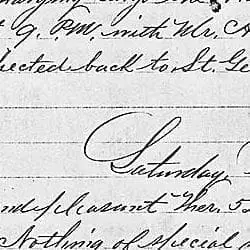 9. P.M. with Mr. A
ected back to St. Ge
Saturday,
nd pleasant Ther. 5
Nothing of special